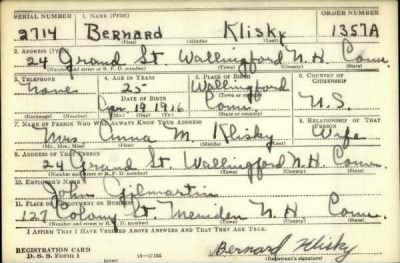 SERIAL NUMBER 1. NAME (Print) ORDER NUMBER
2714 BERNARD KLISKY 1357A
(First) (Middle) (Last)
2. ADDRESS (Print)
24 Grand St. Wallingford N.H. Conn.
(Number and street or R. F. D. number) (Town) (County) (State)
3. TELEPHONE 4. AGE IN YEARS 5. PLACE OF BIRTH 6. COUNTRY OF CITIZENSHIP
None 25 Wallingford
DATE OF BIRTH (Town or county)
19 1916 Conn. U.S.
(Exchange) (Number) (Mo.) (Day) (Yr.) (State or country)
7. NAME OF PERSON WHO WILL ALWAYS KNOW YOUR ADDRESS 8. RELATIONSHIP OF THAT PERSON
Mrs. Anna M. Klisky Wife
(Mr., Mrs., Miss) (First) (Middle) (Last)
9. ADDRESS OF THAT PERSON
24 Grand St. Wallingford N.H. Conn
(Number and street or R. F. D. number) (Town) (County) (State)
10. EMPLOYER'S NAME
John Gilmartin
11. PLACE OF EMPLOYMENT OR BUSINESS
127 Colony St. Meriden N.H. Conn.
(Number and street or R. F. D. number) (Town) (County) (State)
I AFFIRM THAT I HAVE VERIFIED ABOVE ANSWERS AND THAT THEY ARE TRUE.
REGISTRATION CARD
D. S. S. Form 1 Bernard Klisky
(Registrant's signature)